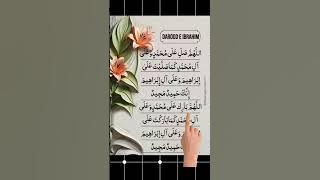 DAROOD E IBRAHIM
اللّٰهُمَّ صَلِّ عَلٰى مُحَمَّدٍ وَعَلٰى
آلِ مُحَمَّدٍ كَمَا صَلَّيْتَ عَلٰى
إِبْرَاهِيمَ وَعَلٰى آلِ إِبْرَاهِيمَ
إِنَّكَ حَمِيدٌ مَجِيدٌ
اللّٰهُمَّ بَارِكْ عَلٰى مُحَمَّدٍ وَعَلٰى
آلِ مُحَمَّدٍ كَمَا بَارَكْتَ عَلٰى
وَعَلٰى آلِ إِبْرَاهِيمَ
حَمِيدٌ مَجِيدٌ